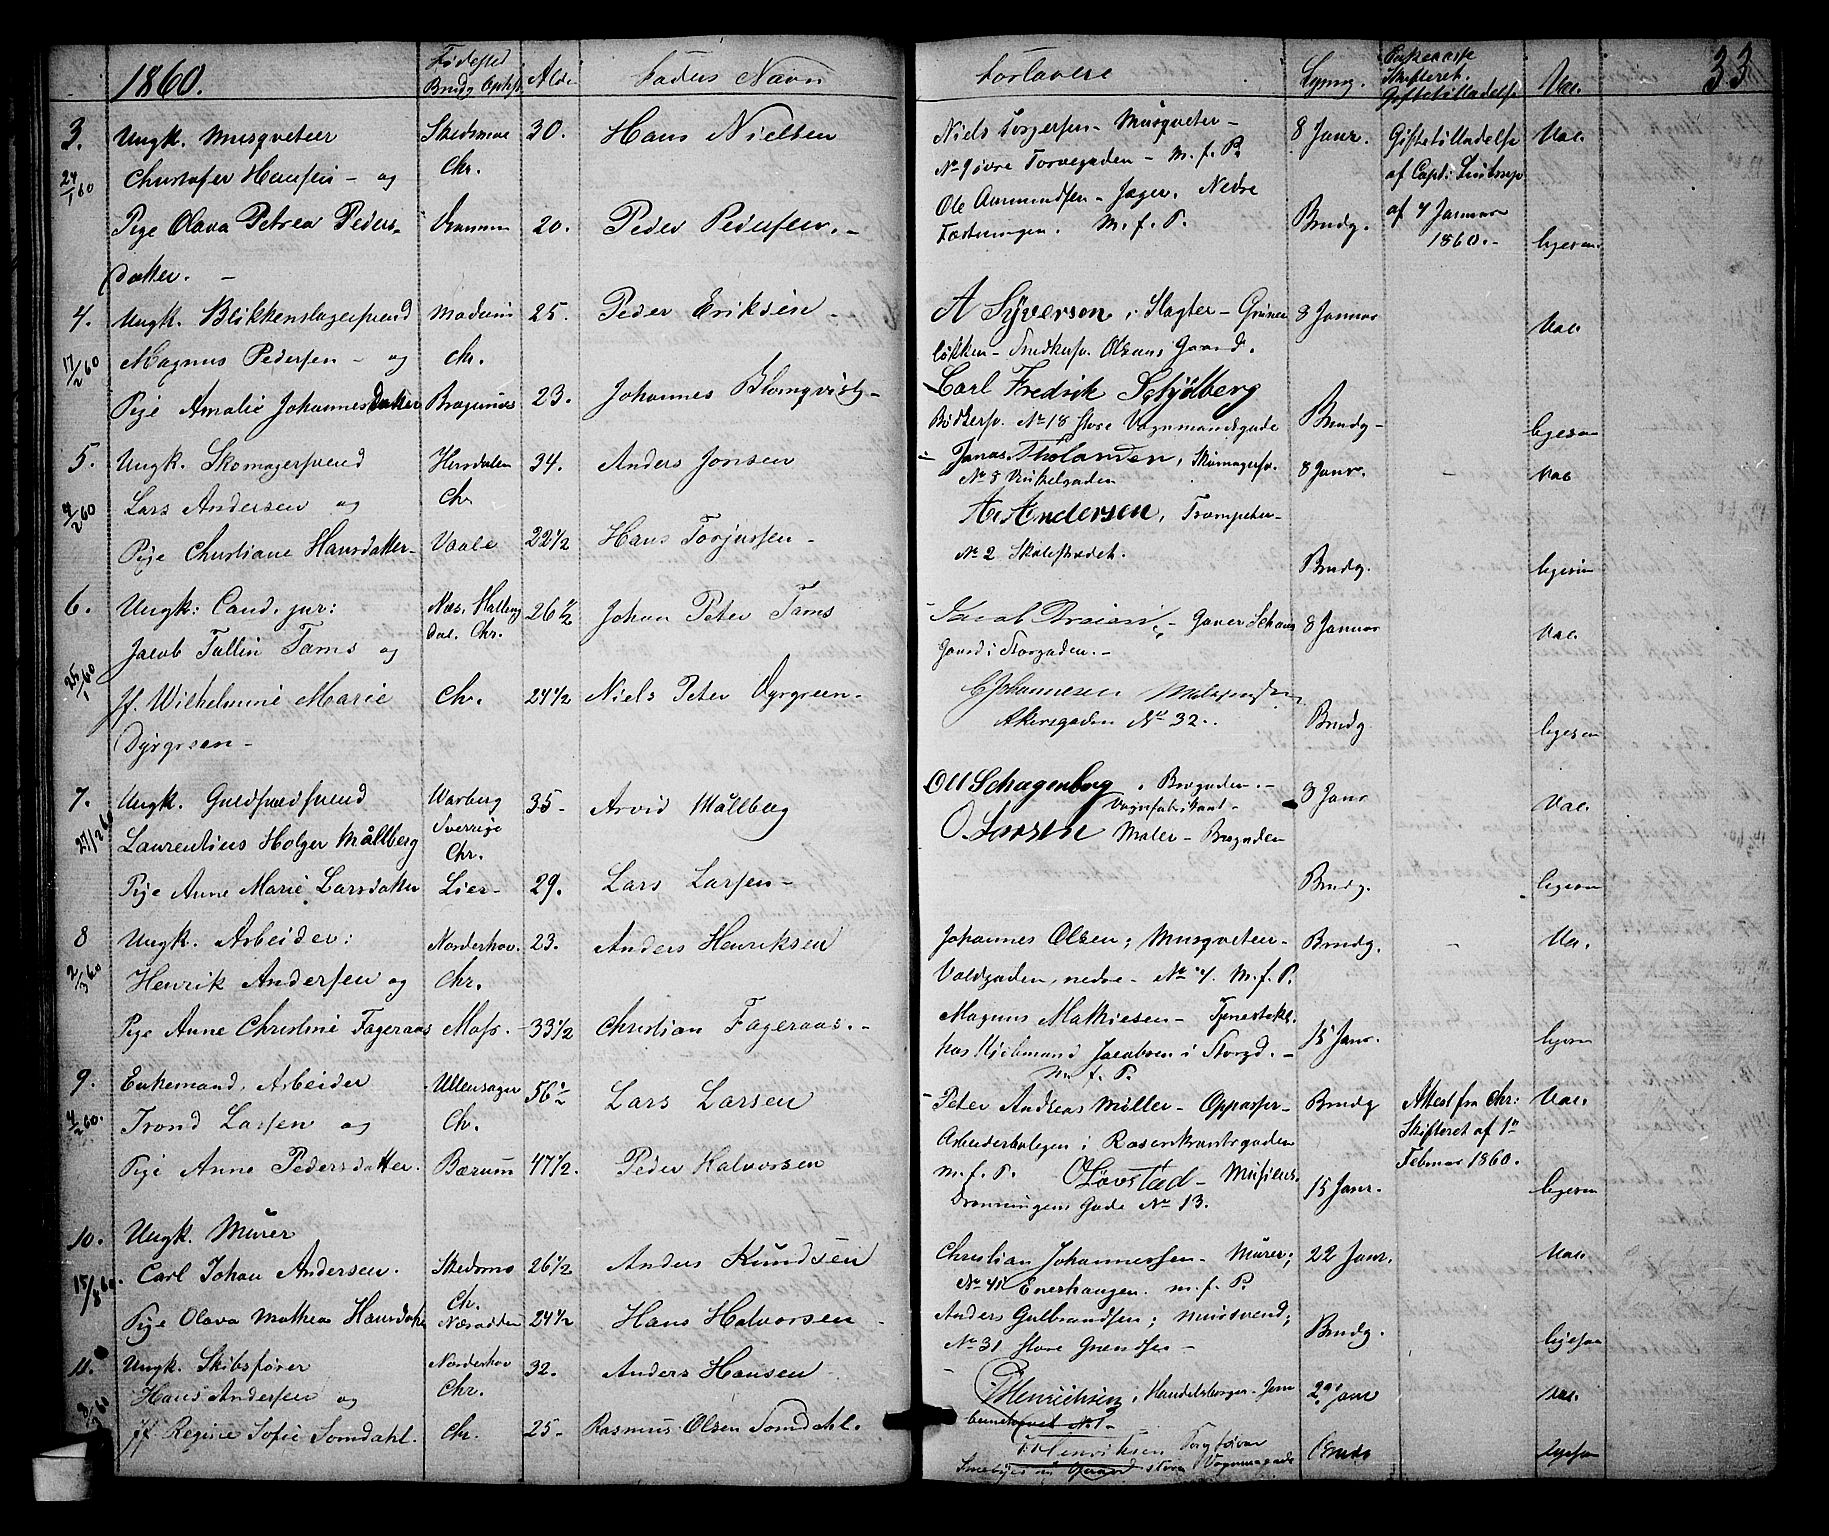 1860. Fødested Brudg Ophst Alder Faders Navn Forlovere Lysnig. Enkerafse Skifteret. Giftetilladelse Vac. 33
3. Ungk. Musqveteer Skedsmoe 30. Hans Nielsen Niels Torgersen - Musqveter - 8 Janr. Giftetilladelse Vac
24/1 60 Christofer Hansen - og Chr. No 9 øvre Torvegaden - M. f. P. af Capt:
Ole Aamundsen - Jæger. Nedre af 4 Januar
Pige Olava Petrea Peders- Drammen 20. Peder Pedersen. - Fæstningen. M. f. P. Brudg. 1860. - ligesaa
datter. -
4. Ungk. Blikkenslagersvend Modum 25. Peder Eriksen - A Syversen, Slagter - Grüner 8 Januar Vac
17/2 60 Magnus Pedersen - og Chr. løkken - Snedkersv. Olsens Gaard.
Carl Fredrik Schjølberg
Pige Amalie Johannesdatter Bragernæs 23. Johannes Blomqvist - Bødkersv. No 18 Store Vognmandsgade Brudg - ligesaa
5. Ungk. Skomagersvend Herdalen 34. Anders Jonsen - Jonas Tholander, Skomagersv. 8 Janr. - Vac
4/2 60 Lars Andersen og Chr. No 8 Vinkelgaden
A. Andersen, Trompeter -
Pige Christiane Hansdatter - Vaale 32 1/2 Hans Torjussen - No 2 Skolestrædet. Brudg. ligesaa
6. Ungk: Cand. jur: Næs. Halling 26 1/2 Johan Peter Tams Jacob - Garver Schous 8 Januar Vac.
25/1 60 Jacob Tullin Tams og dal. Chr. Gaard i Storgaden. -
Jf. Wilhelmine Marie Chr. 24 1/2 Niels Peter Dyrgreen - C Johannesen
Dyrgreen - Akersgaden No 32. Brudg ligesaa
7. Ungk. Guldsmedsvend Warberg 35 - Arvid Mållberg Ott Schagenborg, Brogaden. - 8 Janr Vac.
27/2 60 Laurentius Holger Mållberg Sverrige Chr. Vognfabrikant -
O. Larsen Maler - Brogaden
Pige Anne Marie Larsdatter Lier - 29. Lars Larsen - Brudg. ligesaa
8 Ungk. Arbeider: Norderhov. 23. Anders Henriksen Johannes Olsen; Musqveteer - Brudg. - Va.
2/3 60 Henrik Andersen og Chr. Voldgaden, nedre - No 4. M. f. P.
Magnus Mathiesen - Tjenestekl.
Pige Anne Christine Fageraas Moss. - 33 1/2 Christian Fageraas. - hos Kjøbmand Jacobsen i Storgd. - 15 Janr. ligesaa
M. f. P.
9. Enkemand, Arbeider Ullensager 56 1/2 Lars Larsen - Peter Andreas Møller - Oppasser - Brudg Attest fra Chr: Vac.
4/2 60. Trond Larsen og Chr. Arbeiderboligen i Rosenkrantzgaden Skifteret af 1ste
Pige Anne Pedersdatter. Bærum 47 1/2. Peder Halvorsen M. f. P. O Løvstad - Februar 1860.
Dronningens Gade No 13. 15 Janr. ligesaa
10. Ungk. Murer
15/8 60 Carl Johan Andersen. Skedsmo 26 1/2 Anders Knudsen Christian Johannessen - Murer; 22 Janr. Vac
Chr. Enerhaugen. M. f. P.
Pige Olava Mathea Hansdatter Næsodden 24 1/2 Hans Halvorsen - Anders Gulbrandsen; Mursvend; Brudg. ligesaa
No 31 Store Grændsen -
11. Ungk. Skibsfører Norderhov 32. Anders Hansen Henrichsen, Handelsborger - 22 Janr Vac.
Hans Andersen og Chr.
Jf Regine Sofie Somdahl. Chr. 25 - Rasmus Olsen Somdahl. Henriksen Brudg ligesaa
Gaard Store Vognmagade